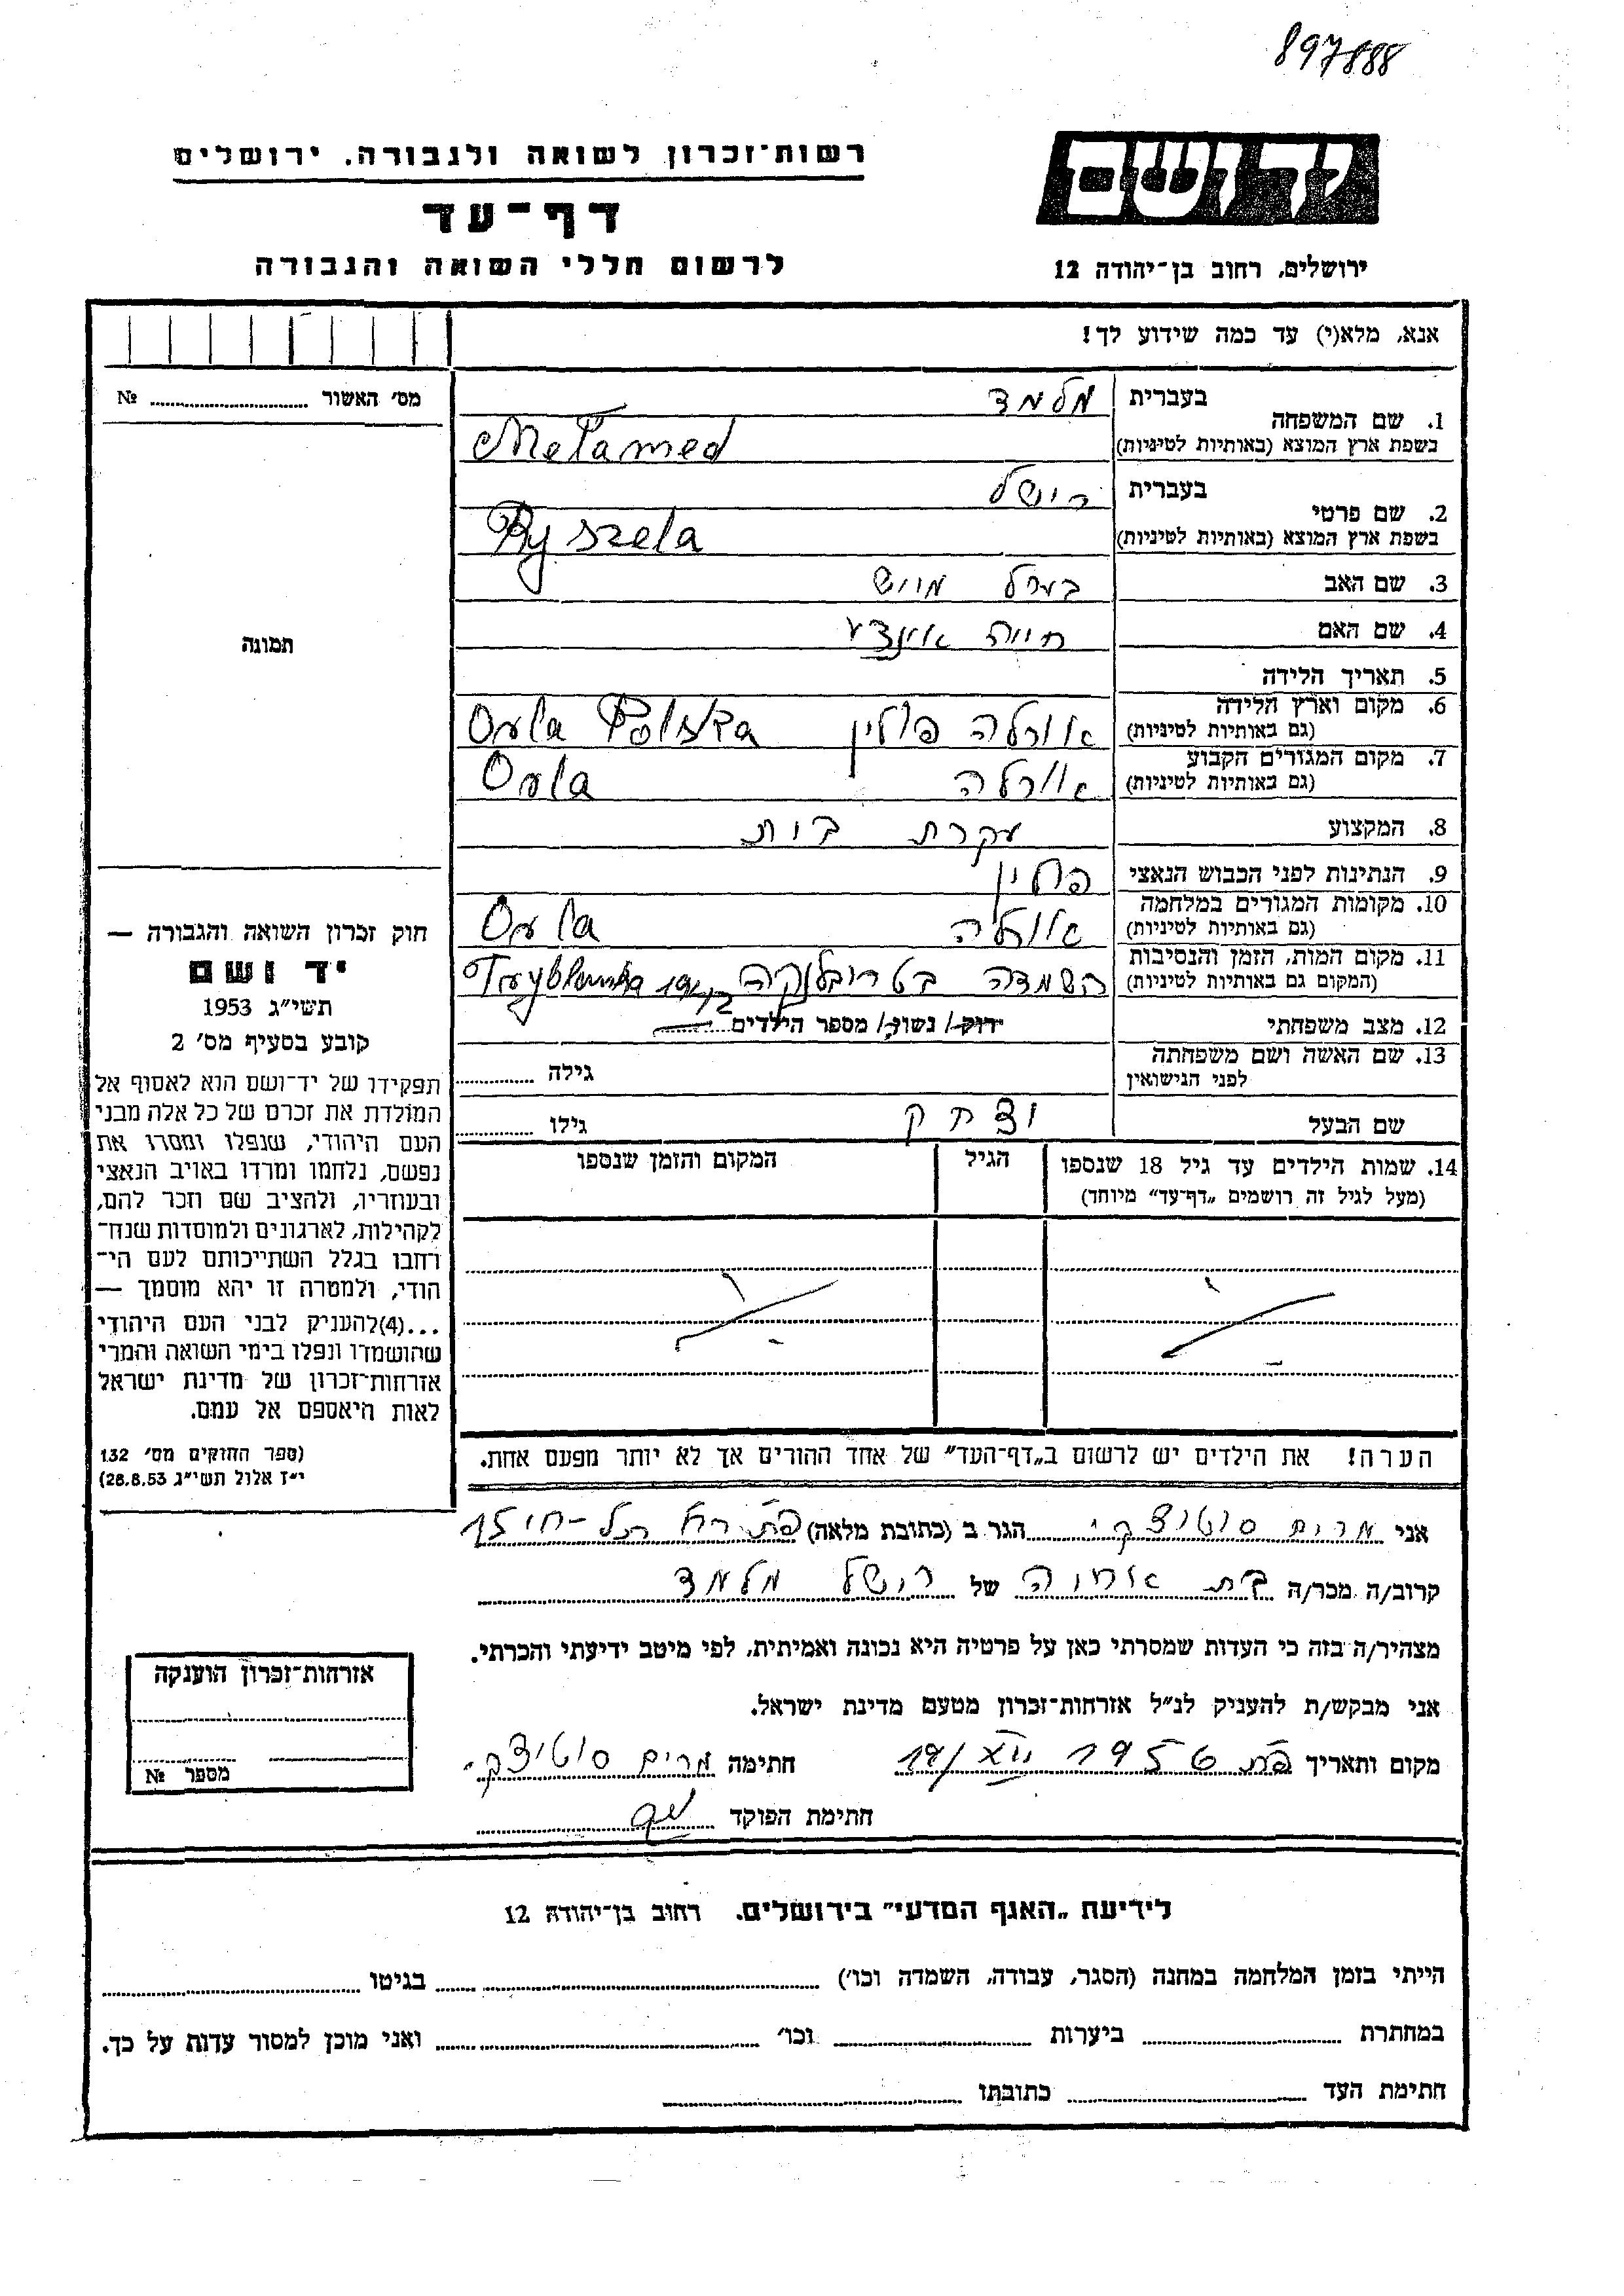 897888
רשות־זכרון לשואה ולגבורה, ירושלים
יד ושם
דף־עד
לרשום חללי השואה והגבורה
ירושלים, רחוב בן־יהודה 12
אנא, מלא(י) עד כמה שידוע לך!
מס' האשור № 
1. שם המשפחה
בעברית מלמד
בשפת ארץ המוצא (באותיות לטיניות) Melamed
2. שם פרטי
בעברית רישל
בשפת ארץ המוצא (באותיות לטיניות) Ryszela
3. שם האב בערל
4. שם האם חייה
5. תאריך הלידה
6. מקום וארץ הלידה (גם באותיות לטיניות) אורלה פולין Orla Polska
7. מקום המגורים הקבוע (גם באותיות לטיניות) אורלה Orla
8. המקצוע עקרת בית
9. הנתינות לפני הכבוש הנאצי פולין
10. מקומות המגורים במלחמה (גם באותיות לטיניות) אורלה Orla
11. מקום המות, הזמן והנסיבות (המקום גם באותיות לטיניות) השמדה בטריבלנקה 1942 Tryblenka
12. מצב משפחתי רוק/ נשוי/ מספר הילדים
13. שם האשה ושם משפחתה לפני הנישואין
גילה
שם הבעל יצחק גילו
14. שמות הילדים עד גיל 18 שנספו
(מעל לגיל זה רושמים „דף־עד" מיוחד)
הגיל
המקום והזמן שנספו
תמונה
חוק זכרון השואה והגבורה —
יד ושם
תשי"ג 1953
קובע בסעיף מס' 2
תפקידו של יד־ושם הוא לאסוף אל
המולדת את זכרם של כל אלה מבני
העם היהודי, שנפלו ומסרו את
נפשם, נלחמו ומרדו באויב הנאצי
ובעוזריו, ולהציב שם וזכר להם,
לקהילות, לארגונים ולמוסדות שנח־
רחבו בגלל השתייכותם לעם הי־
הודי, ולמטרה זו יהא מוסמך —
...(4) להעניק לבני העם היהודי
שהושמדו ונפלו בימי השואה והמרי
אזרחות־זכרון של מדינת ישראל
לאות היאספם אל עמם.
(ספר החוקים מס' 132
י"ז אלול תשי"ג 28.8.53)
הערה! את הילדים יש לרשום ב„דף־העד" של אחד ההורים אך לא יותר מפעם אחת.
אני מרים סוטיצקי הגר ב (כתובת מלאה)
קרוב/ה מכר/ה בת אחיה של רישל מלמד
מצהיר/ה בזה כי העדות שמסרתי כאן על פרטיה היא נכונה ואמיתית, לפי מיטב ידיעתי והכרתי.
אני מבקש/ת להעניק לנ"ל אזרחות־זכרון מטעם מדינת ישראל.
מקום ותאריך 19/XII 1956 חתימה מרים סוטיצקי
חתימת הפוקד
אזרחות־זכרון הוענקה
מספר №
לידיעת „האגף המדעי" בירושלים, רחוב בן־יהודה 12
הייתי בזמן המלחמה במחנה (הסגר, עבודה, השמדה וכו') בגיטו
במחתרת ביערות וכו' ואני מוכן למסור עדות על כך.
חתימת העד כתובתו